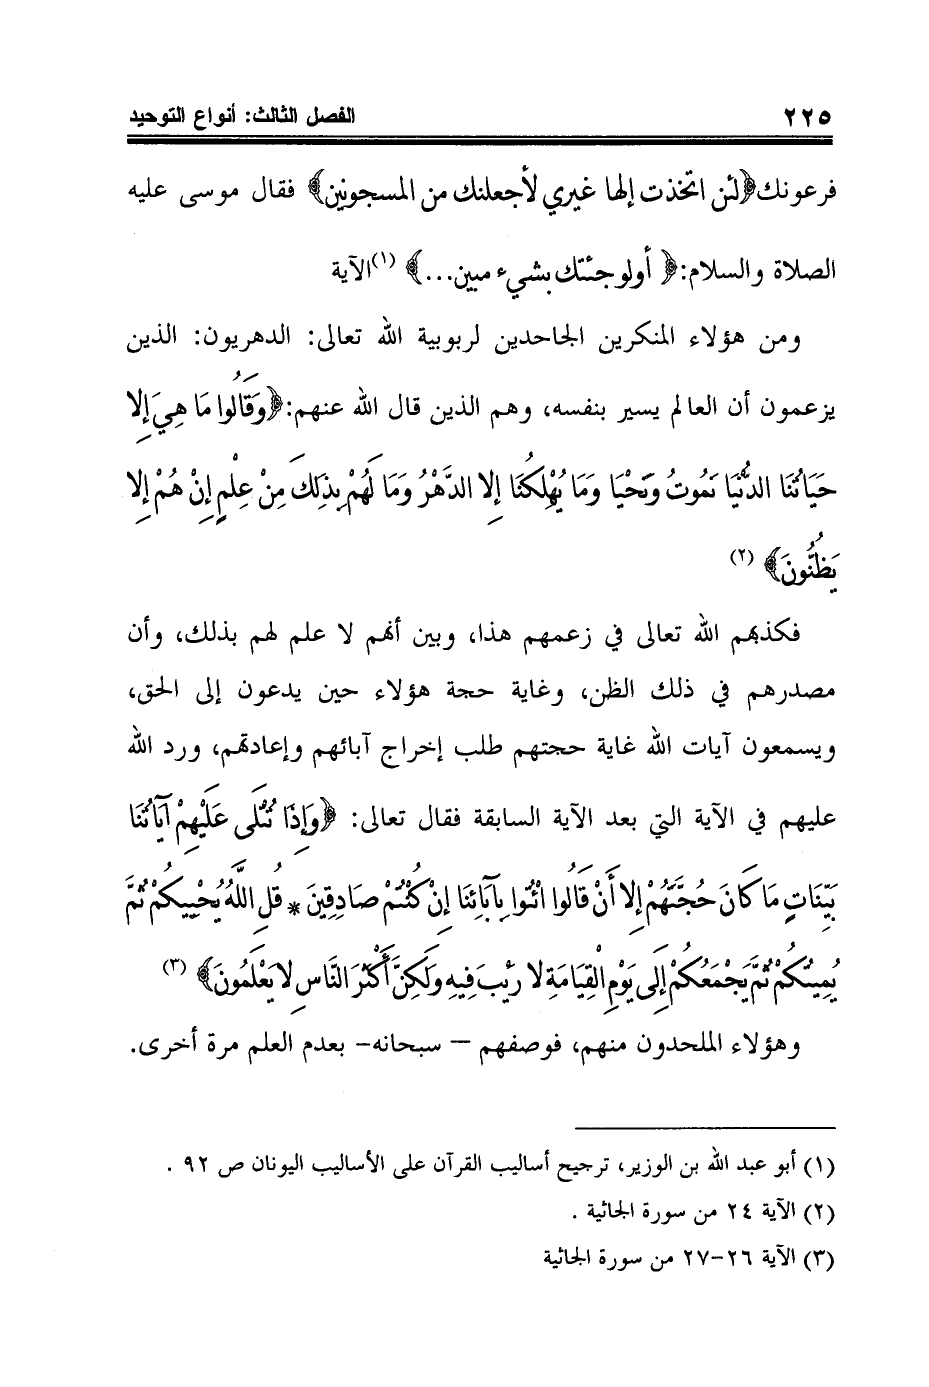 ٢٢٥ الفصل الثالث: أنواع التوحيد
فرعونك﴿لئن اتخذت إلها غيري لأجعلنك من المسجونين﴾ فقال موسى عليه
الصلاة والسلام:﴿ أولو جئتك بشيء مبين...﴾ (١)الآية
ومن هؤلاء المنكرين الجاحدين لربوبية الله تعالى: الدهريون: الذين
يزعمون أن العالم يسير بنفسه، وهم الذين قال الله عنهم:﴿وَقَالُوا مَا هِيَ إِلا
حَيَاتُنَا الدُّنْيَا نَمُوتُ وَنَحْيَا وَمَا يُهْلِكُنَا إِلا الدَّهْرُ وَمَا لَهُمْ بِذَلِكَ مِنْ عِلْمٍ إِنْ هُمْ إِلا
يَظُنُّونَ﴾ (٢)
فكذبهم الله تعالى في زعمهم هذا، وبين أنهم لا علم لهم بذلك، وأن
مصدرهم في ذلك الظن، وغاية حجة هؤلاء حين يدعون إلى الحق،
ويسمعون آيات الله غاية حجتهم طلب إخراج آبائهم وإعادتهم، ورد الله
عليهم في الآية التي بعد الآية السابقة فقال تعالى: ﴿وَإِذَا تُتْلَى عَلَيْهِمْ آيَاتُنَا
بَيِّنَاتٍ مَا كَانَ حُجَّتَهُمْ إِلا أَنْ قَالُوا ائْتُوا بِآبَائِنَا إِنْ كُنْتُمْ صَادِقِينَ * قُلِ اللَّهُ يُحْيِيكُمْ ثُمَّ
يُمِيتُكُمْ ثُمَّ يَجْمَعُكُمْ إِلَى يَوْمِ الْقِيَامَةِ لا رَيْبَ فِيهِ وَلَكِنَّ أَكْثَرَ النَّاسِ لا يَعْلَمُونَ﴾ (٣)
وهؤلاء الملحدون منهم، فوصفهم – سبحانه- بعدم العلم مرة أخرى.
(١) أبو عبد الله بن الوزير، ترجيح أساليب القرآن على الأساليب اليونان ص ٩٢ .
(٢) الآية ٢٤ من سورة الجاثية .
(٣) الآية ٢٦-٢٧ من سورة الجاثية